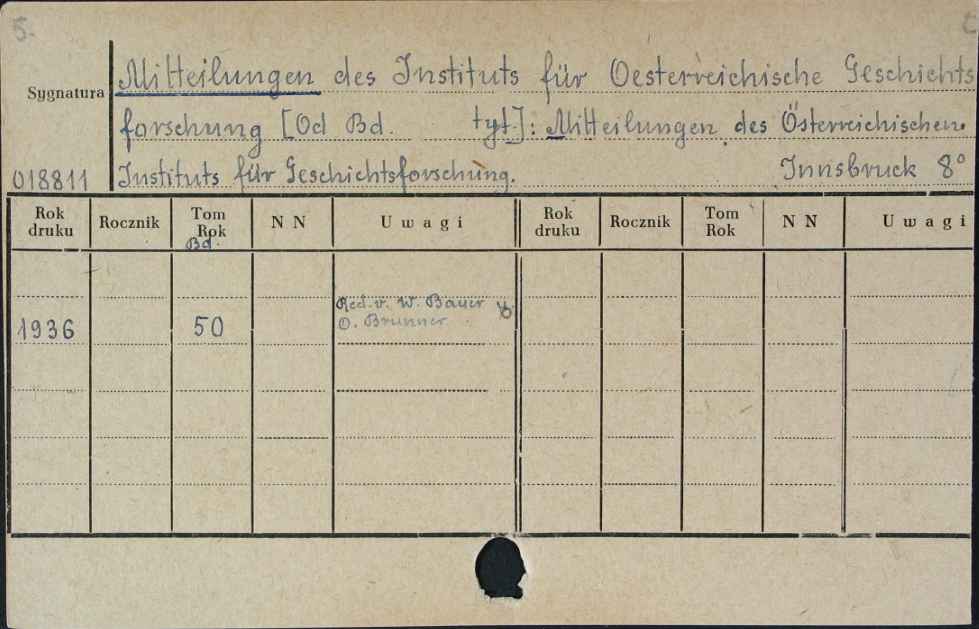 5.
Sygnatura
Mitteilungen des Instituts für Oesterreichische Geschichts
forschung [Od Bd. tyt.]: Mitteilungen des Österreichischen
018811 Instituts für Geschichtsforschung. Innsbruck 8°
Rok druku Rocznik Tom Rok Bd. N N Uwagi Rok druku Rocznik Tom Rok N N Uwagi
1936 50 Red. v. W. Bauer
O. Brunner